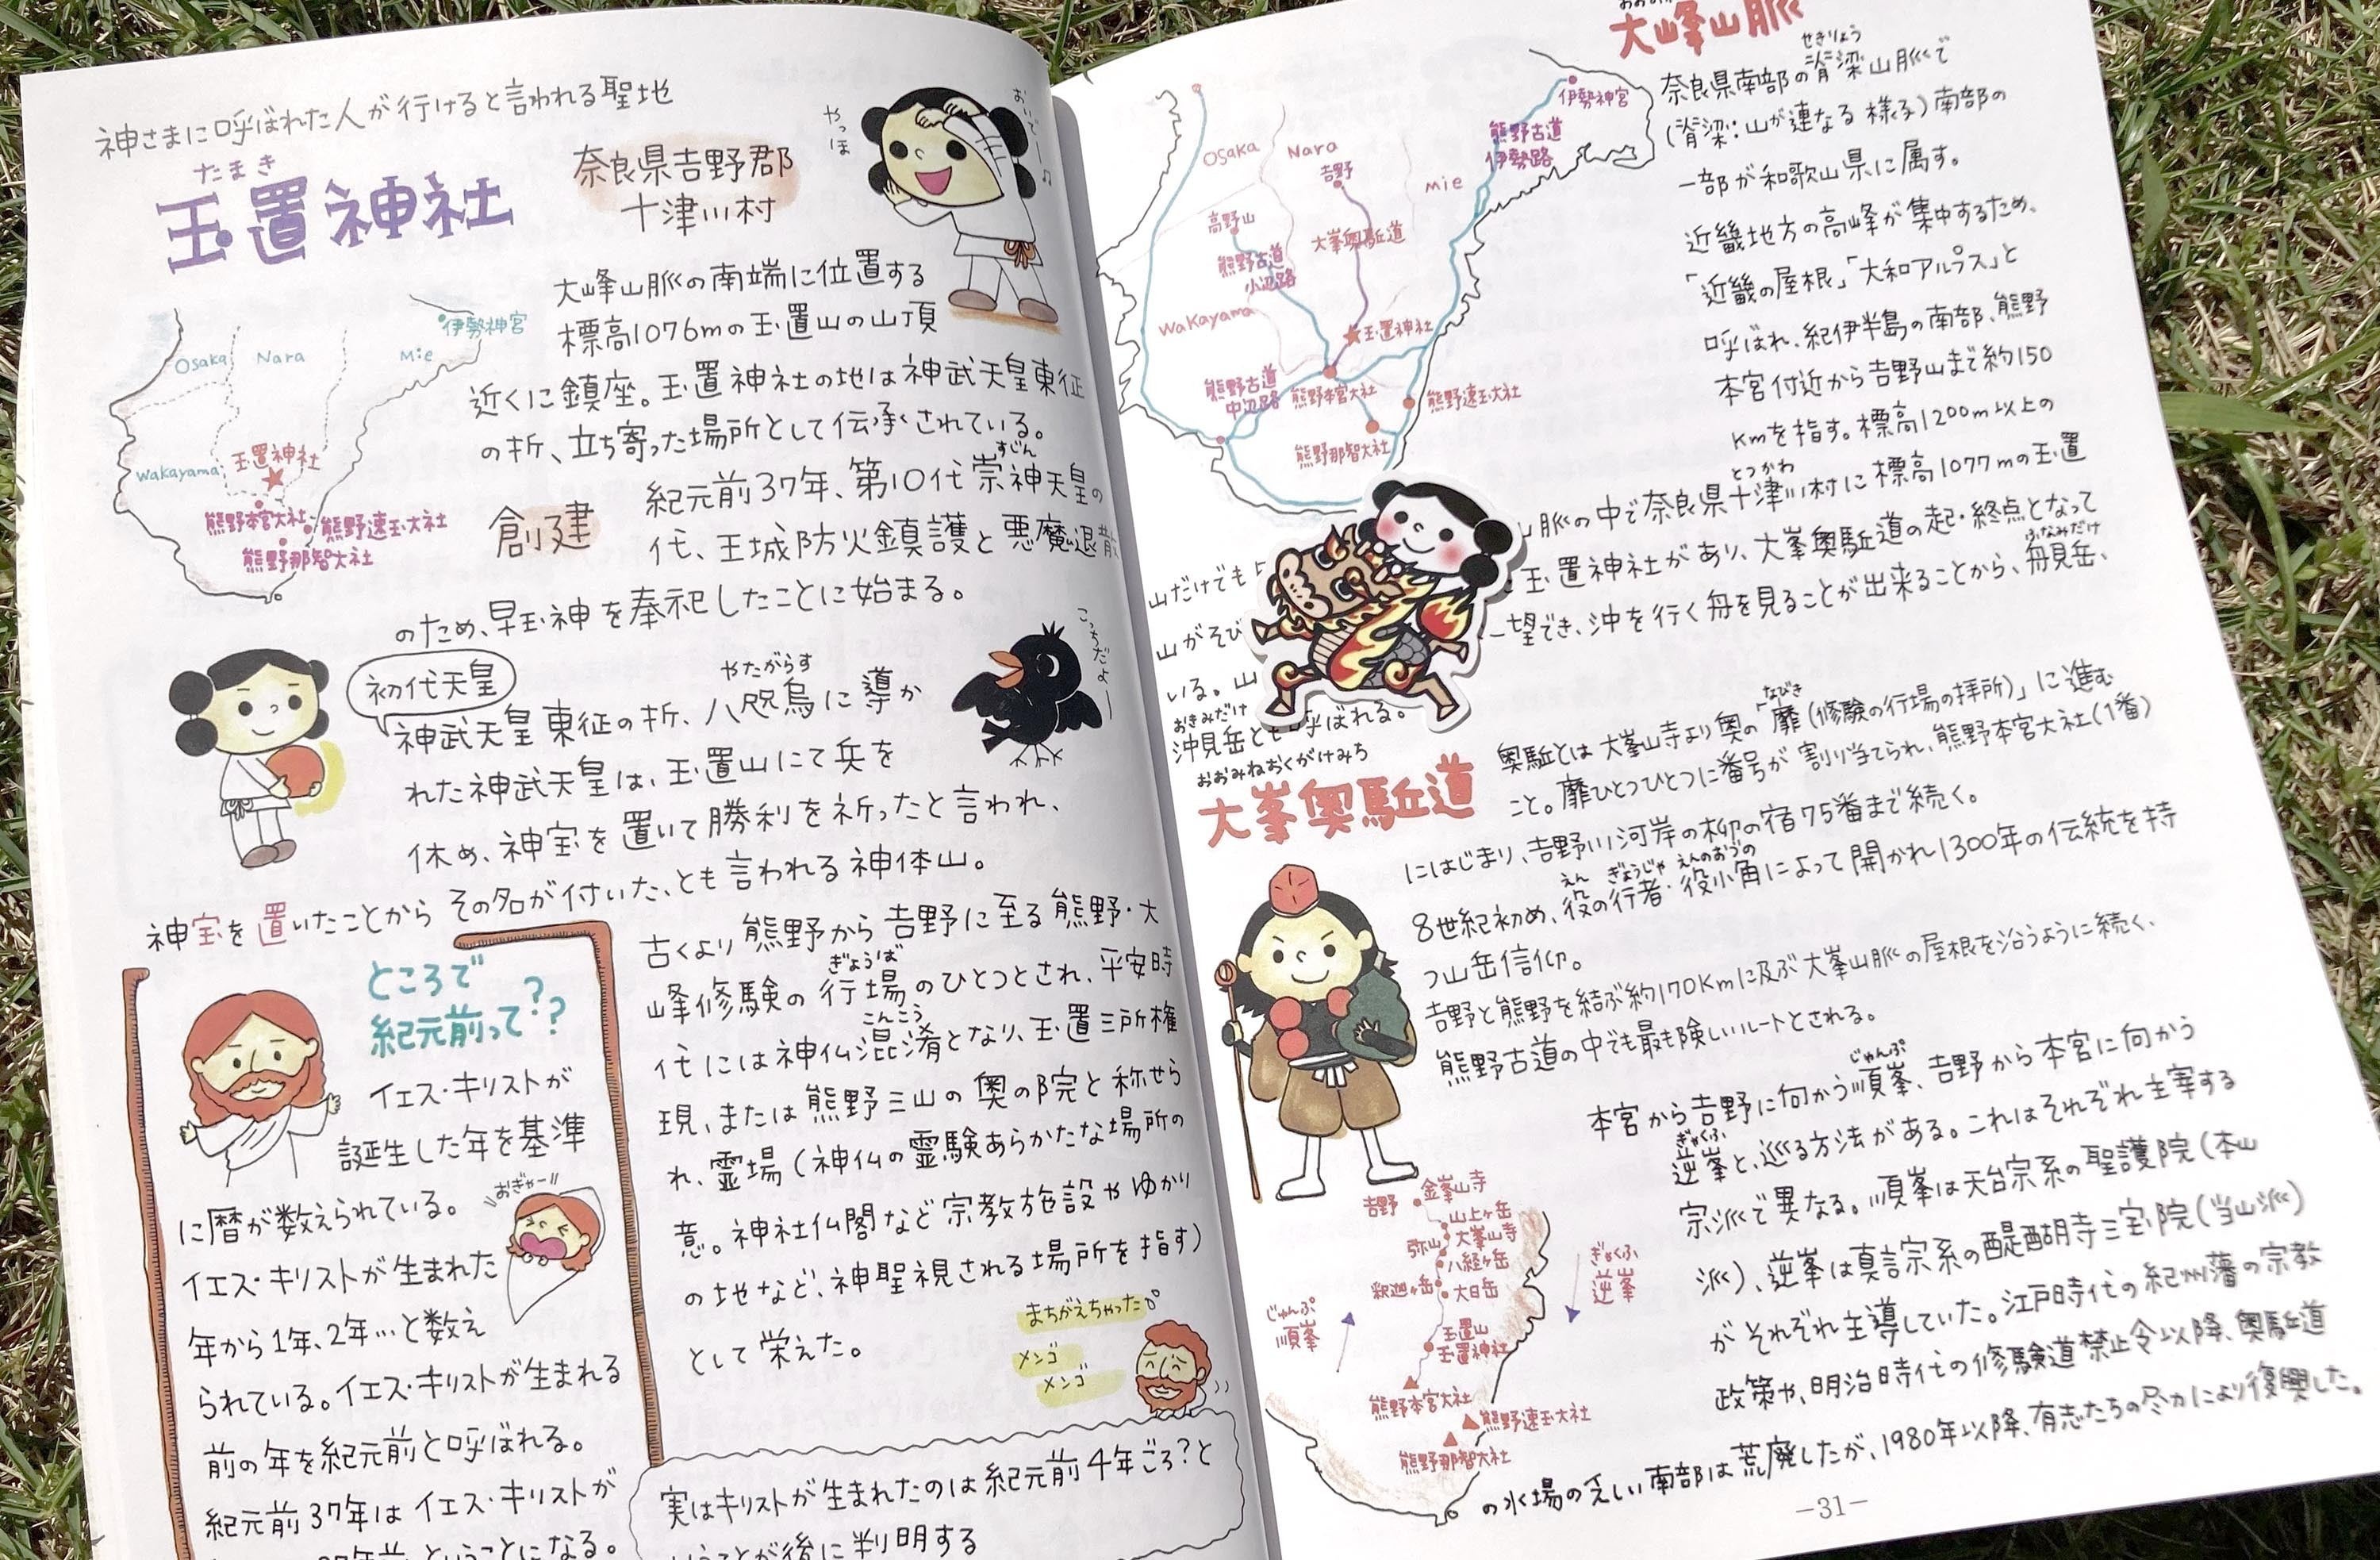 神さまに呼ばれた人が行けると言われる聖地
たまき
玉置神社
奈良県吉野郡
十津川村
やっほ
おいでー♪
大峰山脈の南端に位置する
標高1076mの玉置山の山頂
近くに鎮座。玉置神社の地は神武天皇東征
の折、立ち寄った場所として伝承されている。
Osaka
Nara
Mie
伊勢神宮
Wakayama
玉置神社
熊野本宮大社
熊野速玉大社
熊野那智大社
創建
すじん
紀元前37年、第10代崇神天皇の
代、王城防火鎮護と悪魔退散
のため、早玉神を奉祀したことに始まる。
初代天皇
やたがらす
神武天皇東征の折、八咫烏に導か
れた神武天皇は、玉置山にて兵を
休め、神宝を置いて勝利を祈ったと言われ、
神宝を置いたことからその名が付いた、とも言われる神体山。
こっちだよー
ところで
紀元前って??
イエス・キリストが
誕生した年を基準
に暦が数えられている。
おぎゃー
イエス・キリストが生まれた
年から1年、2年…と数え
られている。イエス・キリストが生まれる
前の年を紀元前と呼ばれる。
紀元前37年はイエス・キリストが
ということになる。
古くより熊野から吉野に至る熊野・大
ぎょうば
峰修験の行場のひとつとされ、平安時
こんこう
代には神仏混淆となり、玉置三所権
現、または熊野三山の奥の院と称せら
れ、霊場(神仏の霊験あらかたな場所の
意。神社仏閣など宗教施設やゆかり
の地など、神聖視される場所を指す)
として栄えた。
まちがえちゃった
メンゴ
メンゴ
実はキリストが生まれたのは紀元前4年ごろ?と
いうことが後に判明する
大峰山脈
せきりょう
奈良県南部の脊梁山脈で
(脊梁:山が連なる様子)南部の
一部が和歌山県に属す。
近畿地方の高峰が集中するため、
「近畿の屋根」「大和アルプス」と
呼ばれ、紀伊半島の南部、熊野
本宮付近から吉野山まで約150
kmを指す。標高1200m以上の
とつかわ
山脈の中で奈良県十津川村に標高1077mの玉置
玉置神社があり、大峯奥駈道の起・終点となって
ふなみだけ
一望でき、沖を行く舟を見ることが出来ることから、舟見岳、
山だけでも
山がそび
いる。山
おきみだけ
沖見岳とも呼ばれる。
Osaka
Nara
吉野
mie
伊勢神宮
熊野古道
伊勢路
高野山
大峯奥駈道
熊野古道
小辺路
Wakayama
玉置神社
熊野古道
中辺路
熊野本宮大社
熊野速玉大社
熊野那智大社
おおみねおくがけみち
大峯奥駈道
なびき
奥駈とは大峯山寺より奥の「靡(修験の行場の拝所)」に進む
こと。靡ひとつひとつに番号が割り当てられ、熊野本宮大社(1番)
にはじまり、吉野川河岸の柳の宿75番まで続く。
えん ぎょうじゃ えんのおづの
8世紀初め、役の行者・役小角によって開かれ1300年の伝統を持
つ山岳信仰。
吉野と熊野を結ぶ約170Kmに及ぶ大峯山脈の屋根を沿うように続く、
熊野古道の中でも最も険しいルートとされる。
じゅんぷ
本宮から吉野に向かう順峯、吉野から本宮に向かう
ぎゃくふ
逆峯と、巡る方法がある。これはそれぞれ主宰する
宗派で異なる。順峯は天台宗系の聖護院(本山
派)、逆峯は真言宗系の醍醐寺三宝院(当山派)
がそれぞれ主導していた。江戸時代の紀州藩の宗教
政策や、明治時代の修験道禁止令以降、奥駈道
の水場の乏しい南部は荒廃したが、1980年以降、有志たちの尽力により復興した。
吉野
金峯山寺
山上ヶ岳
大峯山寺
弥山
八経ヶ岳
釈迦ヶ岳
大日岳
玉置山
玉置神社
熊野本宮大社
熊野速玉大社
熊野那智大社
じゅんぷ
順峯
ぎゃくふ
逆峯
−31−